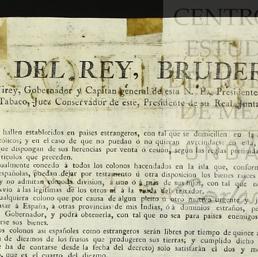 CENTRO
ESTUD
DE ME
DEL REY, BRUDER
Virey, Gobernador y Capitan general de esta N. E. Presidente
Tabaco, Juez Conservador de este, Presidente de su Real Junta
hallen establecidos en paises estrangeros, con tal que se domicilien en la
y en el caso de que no puedan ó no quieran avecindarse en ella,
que dispongan de sus herencias por venta ó censo, segun las reglas
artículos que preceden.
igualmente concedo á todos los colonos hacendados en la isla que, conforme
españolas, puedan dejar por testamento ú otra disposicion los bienes raices
y no admitan cómoda division, á uno ó á mas de sus hijos, con tal que
á las legítimas de los otros ni á la viuda del testador.
qualquiera colono que por causa de algun pleito u otro motivo urgente y
pasar á España, á otras provincias de mis Indias, ó á dominios estraños,
Gobernador, y podrá obtenerla, con tal que no sea para paises enemigos
sus bienes.
los colonos asi españoles como estrangeros serán libres por tiempo de quince
de diezmos de los frutos que produgeren sus tierras; y cumplido dicho
se ha de contarse desde la fecha del decreto) solo satisfarán el dos y
que es el cuarto del diezmo.